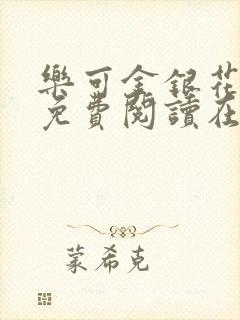 樂可金銀花
免費閱讀在
蒙希克